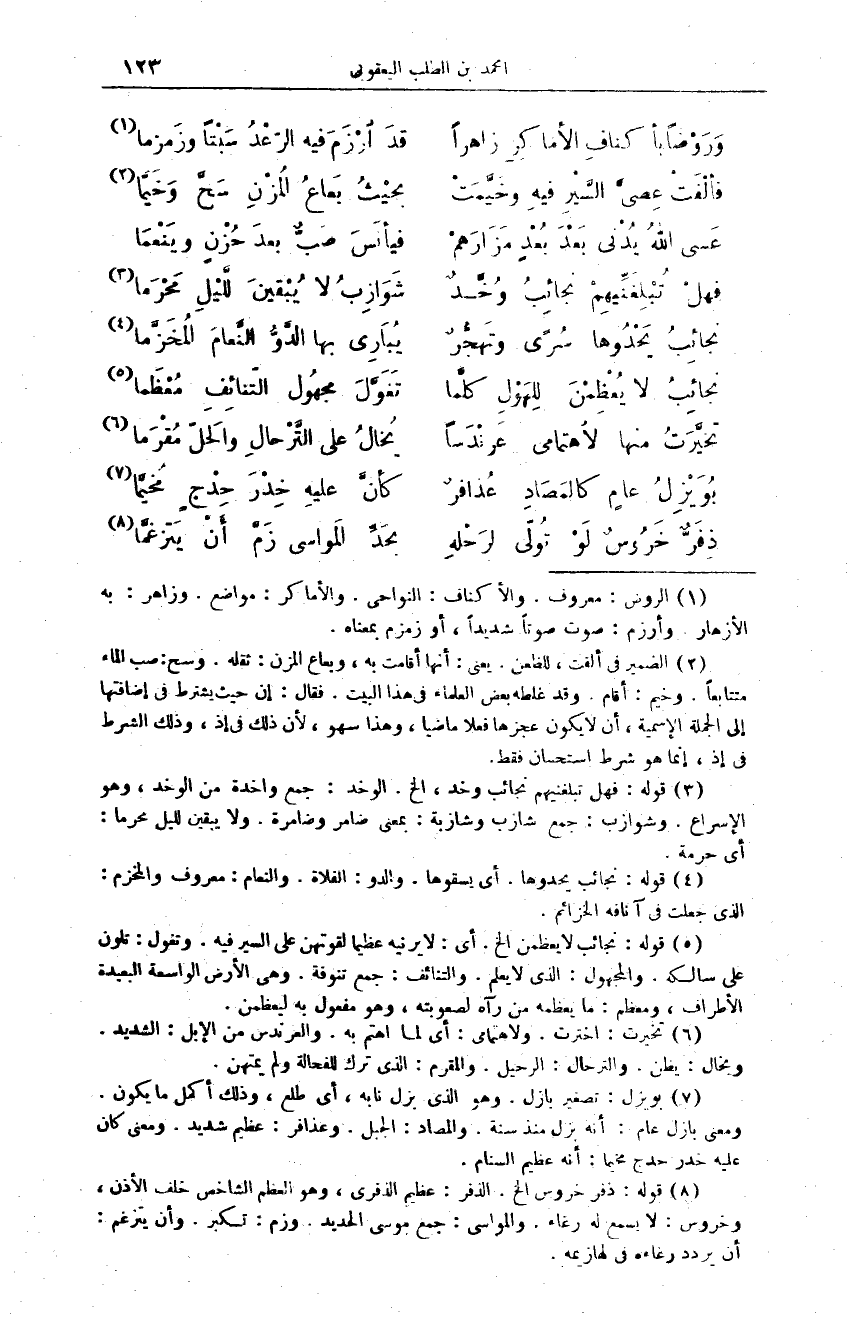 احمد بن الطلب اليعقوبى ١٢٣
وَرَوْضاً بأ كنافِ الأماكرِ زاهراً قدَ أرْزَمَ فيه الرّعْدُ سَبْتاً وزَمزما (١)
فألْقَتْ عِصىَّ السَّيْرِ فيهِ وخَيَّمَتْ بحَيْثُ بَعاعُ المُزْنِ سَحَّ وَخَيَّما (٢)
عَسى اللهُ يُدْنى بَعْدَ بُعْدٍ مَزَارَهمْ فيأنَسَ صَبٌّ بعدَ حُزْنٍ وينْعَمَا
فهلْ تُبْلِغَنِّيهِمْ نجائبُ وُخَّدٌ شَوَازِبُ لا يُبْقينَ للَّيْلِ مَحْرَما (٣)
نجائبُ يَحْدُوها سُرًى وتَهَجُّرٌ يُبَارِى بها الدَّوُّ النَّعامَ المُخَزَّما (٤)
نجائبُ لا يُعْظِمْنَ لِلهَوْلِ كلَّما تَغَوَّلَ مجهُول التَّنائفِ مُعْظَما (٥)
تخَيَّرَتُ منها لاُهتِمامى عَرَندَساً يُخالُ على التَّرْحالِ والحَلّ مُقْرَما (٦)
بُوَيْزِلُ عامٍ كالمَصَادِ عُذافرٌ كأنَّ عليهِ خِدْرَ حِدْجٍ مُخَيَّما (٧)
ذِفَرٌّ خَرُوسٌ لَوْ تُولّى لرَحْلهِ بحَدِّ المَواسى زَمَّ أَنْ يَتَزغَّما (٨)
(١) الروض : معروف . والأكناف : النواحى . والأماكر : مواضع . وزاهر : به
الأزهار . وأرزم : صوت صوتاً شديداً ، أو زمزم بمعناه .
(٢) الضمير فى ألقت ، للظعن . يعنى : أنها أقامت به ، وبعاع المزن : ثقله . وسح : صب الماء
متتابعاً . وخيم : أقام . وقد غلطه بعض العلماء فى هذا البيت . فقال : إن حيث يشترط فى إضافتها
إلى الجملة الإسمية ، أن لايكون عجزها فعلا ماضيا ، وهذا سهو ، لأن ذلك فى إذ ، وذلك الشرط
فى إذ ، إنما هو شرط استحسان فقط.
(٣) قوله : فهل تبلغنيهم نجائب وخد ، الخ . الوخد : جمع واخدة من الوخد ، وهو
الإسراع . وشوازب : جمع شازب وشازبة : بمعنى ضامر وضامرة . ولا يبقين لليل محرما :
أى حرمة .
(٤) قوله : نجائب يحدوها . أى يسقوها . والدو : الفلاة . والنعام : معروف والمخزم :
الذى جعلت فى آنافه الخزائم .
(٥) قوله : نجائب لايعظمن الخ . أى : لايرنيه عظيما لقوتهن على السير فيه . وتغول : تلون
على سالكه . والمجهول : الذى لايعلم . والتنائف : جمع تنوفة . وهى الأرض الواسعة البعيدة
الأطراف ، ومعظم : ما يعظمه من رآه لصعوبته ، وهو مفعول به ليعظمن .
(٦) تخيرت : اخترت . ولاهتمامى : أى لما اهتم به . والعرندس من الإبل : الشديد .
ويخال : يظن . والترحال : الرحيل . والمقرم : الذى ترك للفحالة ولم يمتهن .
(٧) بويزل : تصغير بازل . وهو الذى بزل نابه ، أى طلع ، وذلك أكمل مايكون .
ومعنى بازل عام : أنه بزل منذ سنة . والمصاد : الجبل . وعذافر : عظيم شديد . ومعنى كان
عليه خدر حدج مخيما : أنه عظيم السنام .
(٨) قوله : ذفر خروس الخ . الذفر : عظيم الذفرى ، وهو العظم الشاخص خلف الأذن ،
وخروس : لا يسمع له رغاء . والمواسى : جمع موسى الحديد . وزم : تكبر . وأن يتزغم :
أن يردد رغاءه فى لهازيمه .